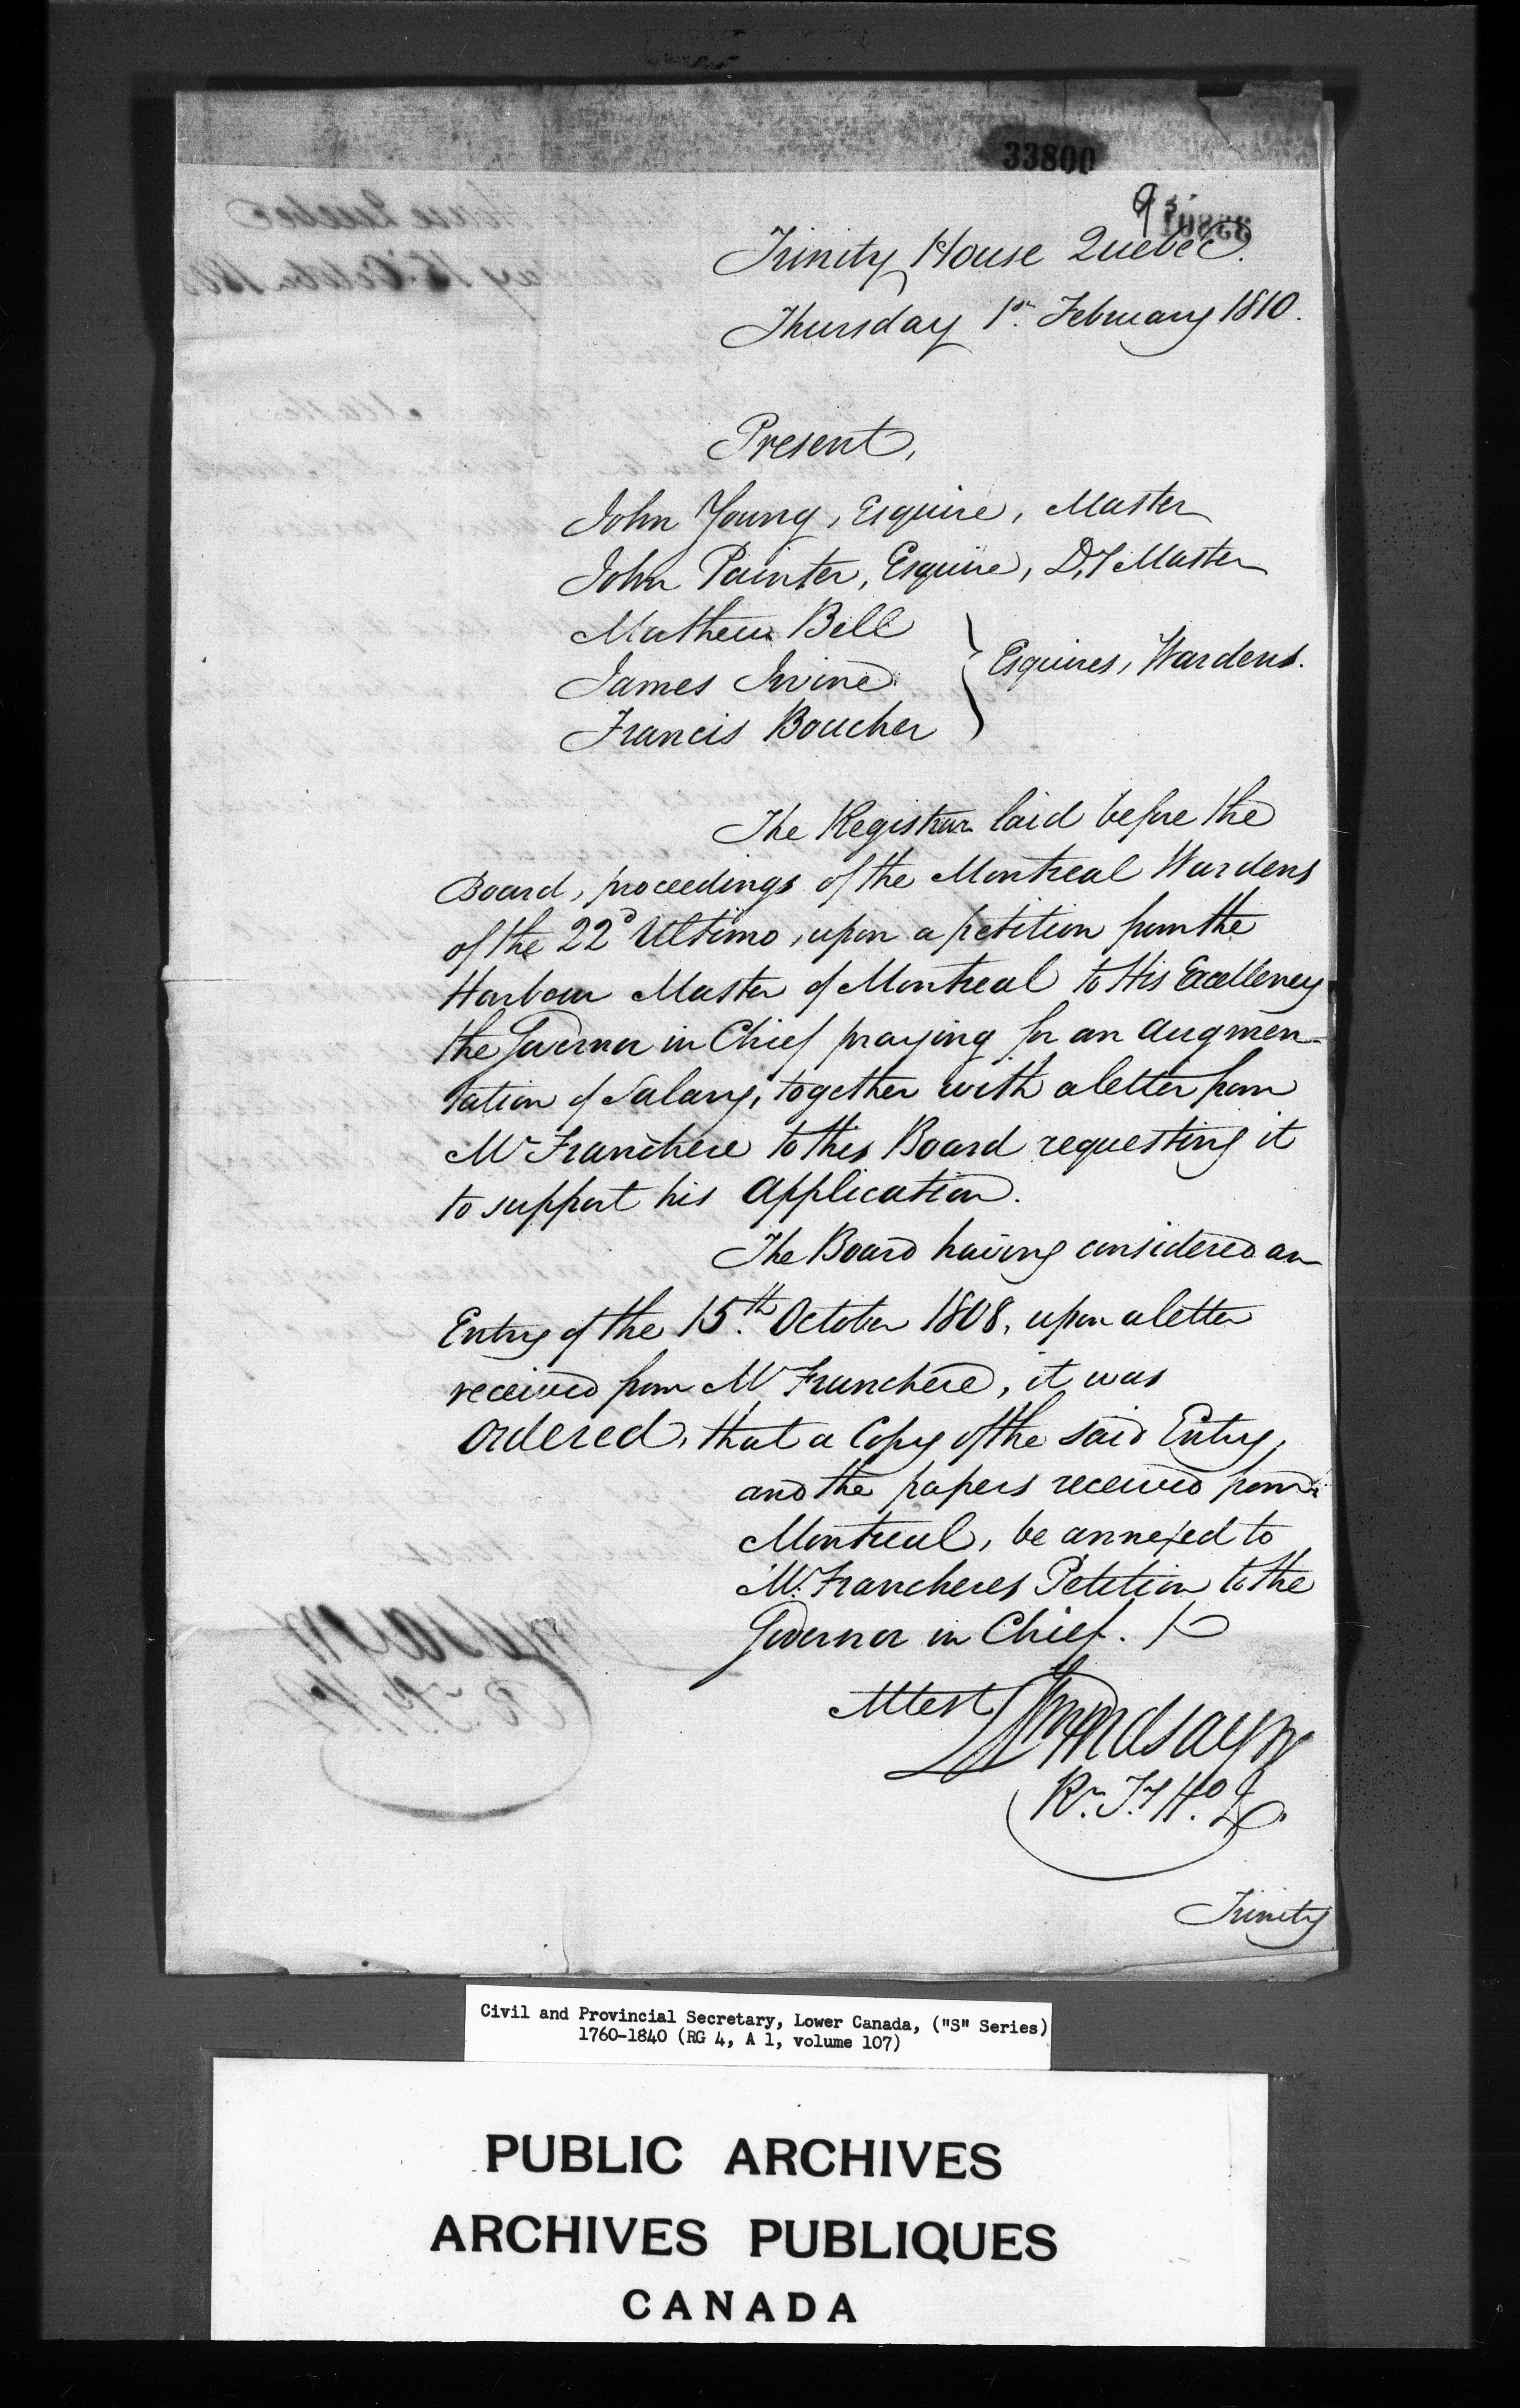 33800
Trinity House Quebec.
Thursday 1st. February 1810.
Present,
John Young, Esquire, Master
John Painter, Esquire, Dy Master
Mathew Bell
James Irvine
Francis Boucher
} Esquires, Wardens.
The Registrar laid before the
Board, proceedings of the Montreal Wardens
of the 22d Ultimo, upon a petition from the
Harbour Master of Montreal to His Excellency
the Governor in Chief praying for an augmen-
tation of Salary, together with a letter from
Mr Franchere to this Board requesting it
to support his application.
The Board having considered an
Entry of the 15.th October 1808, upon a letter
received from Mr Franchere, it was
Ordered, that a Copy of the said Entry,
and the papers received from
Montreal, be annexed to
Mr. Francheres Petition to the
Governor in Chief.
Attest
Wm Lindsay Jr
Rr. Ty Ho. Q.
Trinity
Civil and Provincial Secretary, Lower Canada, ("S" Series)
1760-1840 (RG 4, A 1, volume 107)
PUBLIC ARCHIVES
ARCHIVES PUBLIQUES
CANADA